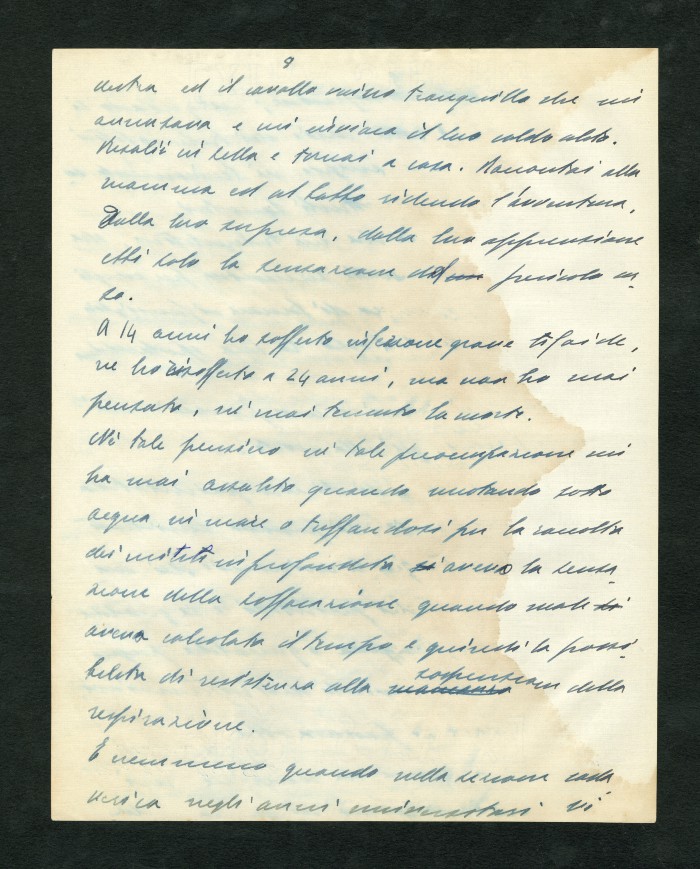 8
destra ed il cavallo vicino tranquillo che mi
annusava e mi inviava il suo caldo alito.
Risalii in sella e tornai a casa. Raccontai alla
mamma ed al babbo ridendo l'avventura,
Dalla loro sorpresa, dalla loro apprensione
ebbi solo la sensazione del pericolo co-
so.
A 14 anni ho sofferto infezione grave tifoide,
ne ho risofferto a 24 anni, ma non ho mai
pensato, nè mai temuto la morte.
Nè tale pensiero nè tale preoccupazione mi
ha mai assalito quando nuotando sotto
acqua in mare o tuffandosi per la raccolta
dei mitili in profondità si avevo la sensa-
zione della soffocazione quando male si
avevo calcolato il tempo e quindi la possi-
bilità di resistenza alla sospensione della
respirazione.
E nemmeno quando nella sezione cada-
verica negli anni universitari si